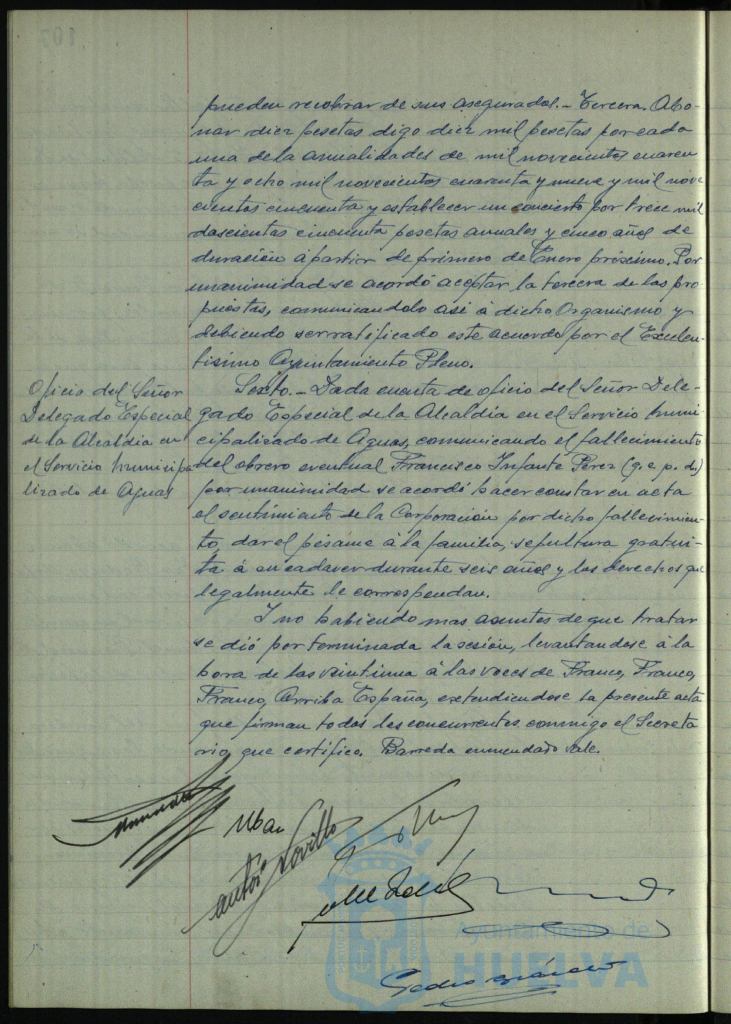 pueden recobrar de sus asegurados.- Tercera. Abo-
nar diez pesetas digo diez mil pesetas por cada
una de la anualidades de mil novecientos cuaren
ta y ocho mil novecientos cuarenta y nueve y mil nove
cientos cincuenta y establecer un concierto por trece mil
doscientas cincuenta pesetas anuales y cinco años de
duración á partir de primero de Enero próximo. Por
unanimidad se acordó aceptar la tercera de las pro
puestas, comunicandolo asi á dicho Organismo y
debiendo ser ratificado este acuerdo por el Excelen-
tisimo Ayuntamiento Pleno.
Oficio del Señor
Delegado Especial
de la Alcaldia en
el Servicio Municipa
lizado de Aguas
Sexto.- Dada cuenta de oficio del Señor Dele-
gado Especial de la Alcaldía en el Servicio Muni-
cipalizado de Aguas, comunicando el fallecimiento
del obrero eventual Francisco Infante Pérez (q.e.p.d.)
por unanimidad se acordó hacer constar en acta
el sentimiento de la Corporación por dicho fallecimien
to, dar el pésame á la familia, sepultura gratui-
ta á su cadaver durante seis años y los derechos que
legalmente le correspondan.
Y no habiendo mas asuntos de que tratar
se dió por terminada la sesión, levantandose á la
hora de las veintiuna á las voces de Franco, Franco,
Franco, Arriba España, extendiendose la presente acta
que firman todos los concurrentes conmigo el Secreta
rio, que certifico. Barreda enmendado vale.
Ayuntamiento de
HUELVA
Pedro